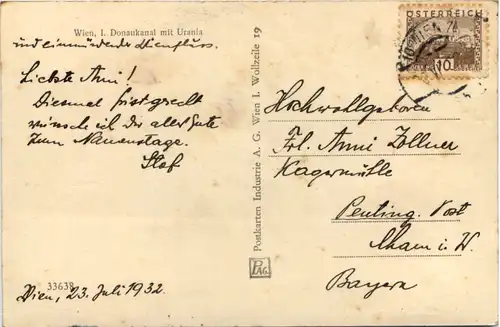 Wien, I. Donaukanal mit Urania
und einmündender Wienfluss.
Liebste Anni!
Diesmal fristgerecht
wünsch ich Dir alles Gute
zum Namenstage.
Stef
33638
Wien, 23. Juli 1932.
Postkarten Industrie A. G. Wien I. Wollzeile 19
PAG
ÖSTERREICH
10
WIEN
Hochwohlgeboren
Frl. Anni Zollner
Kagermühle
Penting. Post
Cham i. W.
Bayern